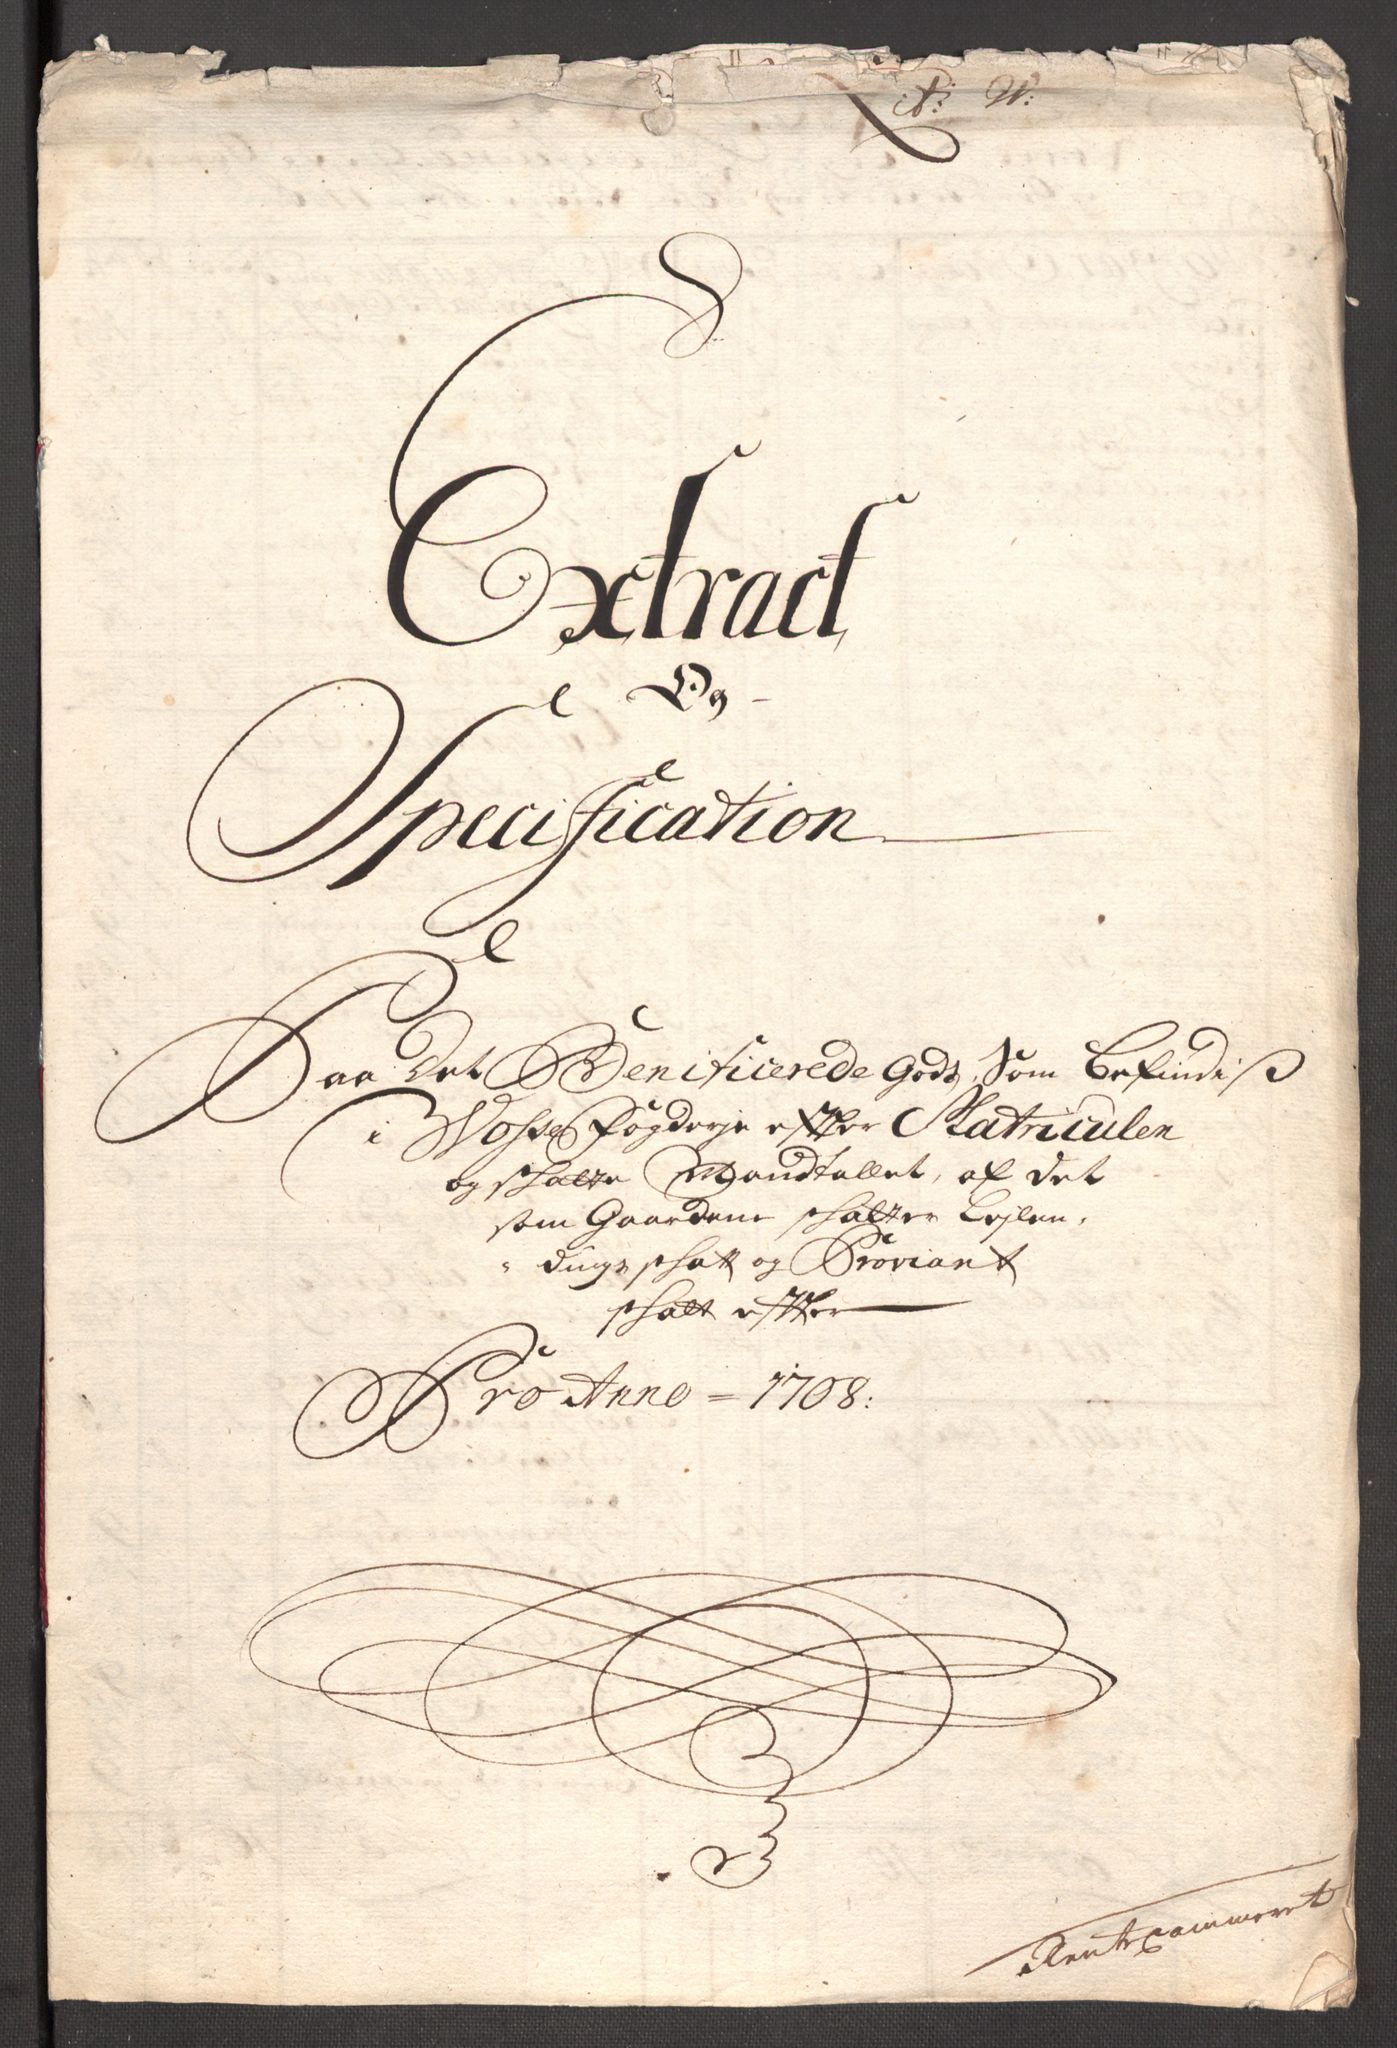 Lit: W:
Extract
Og
Specification
Paa Det Benificerede Gods, Som befindiß
i Wosse fogderje efter Matriculen
og schatte Mandtallet, af det
som Gaardene schatter Lejlen,
dings schatt og Proviant
schatt efter
Pro Anno = 1708:
Rentecammeret